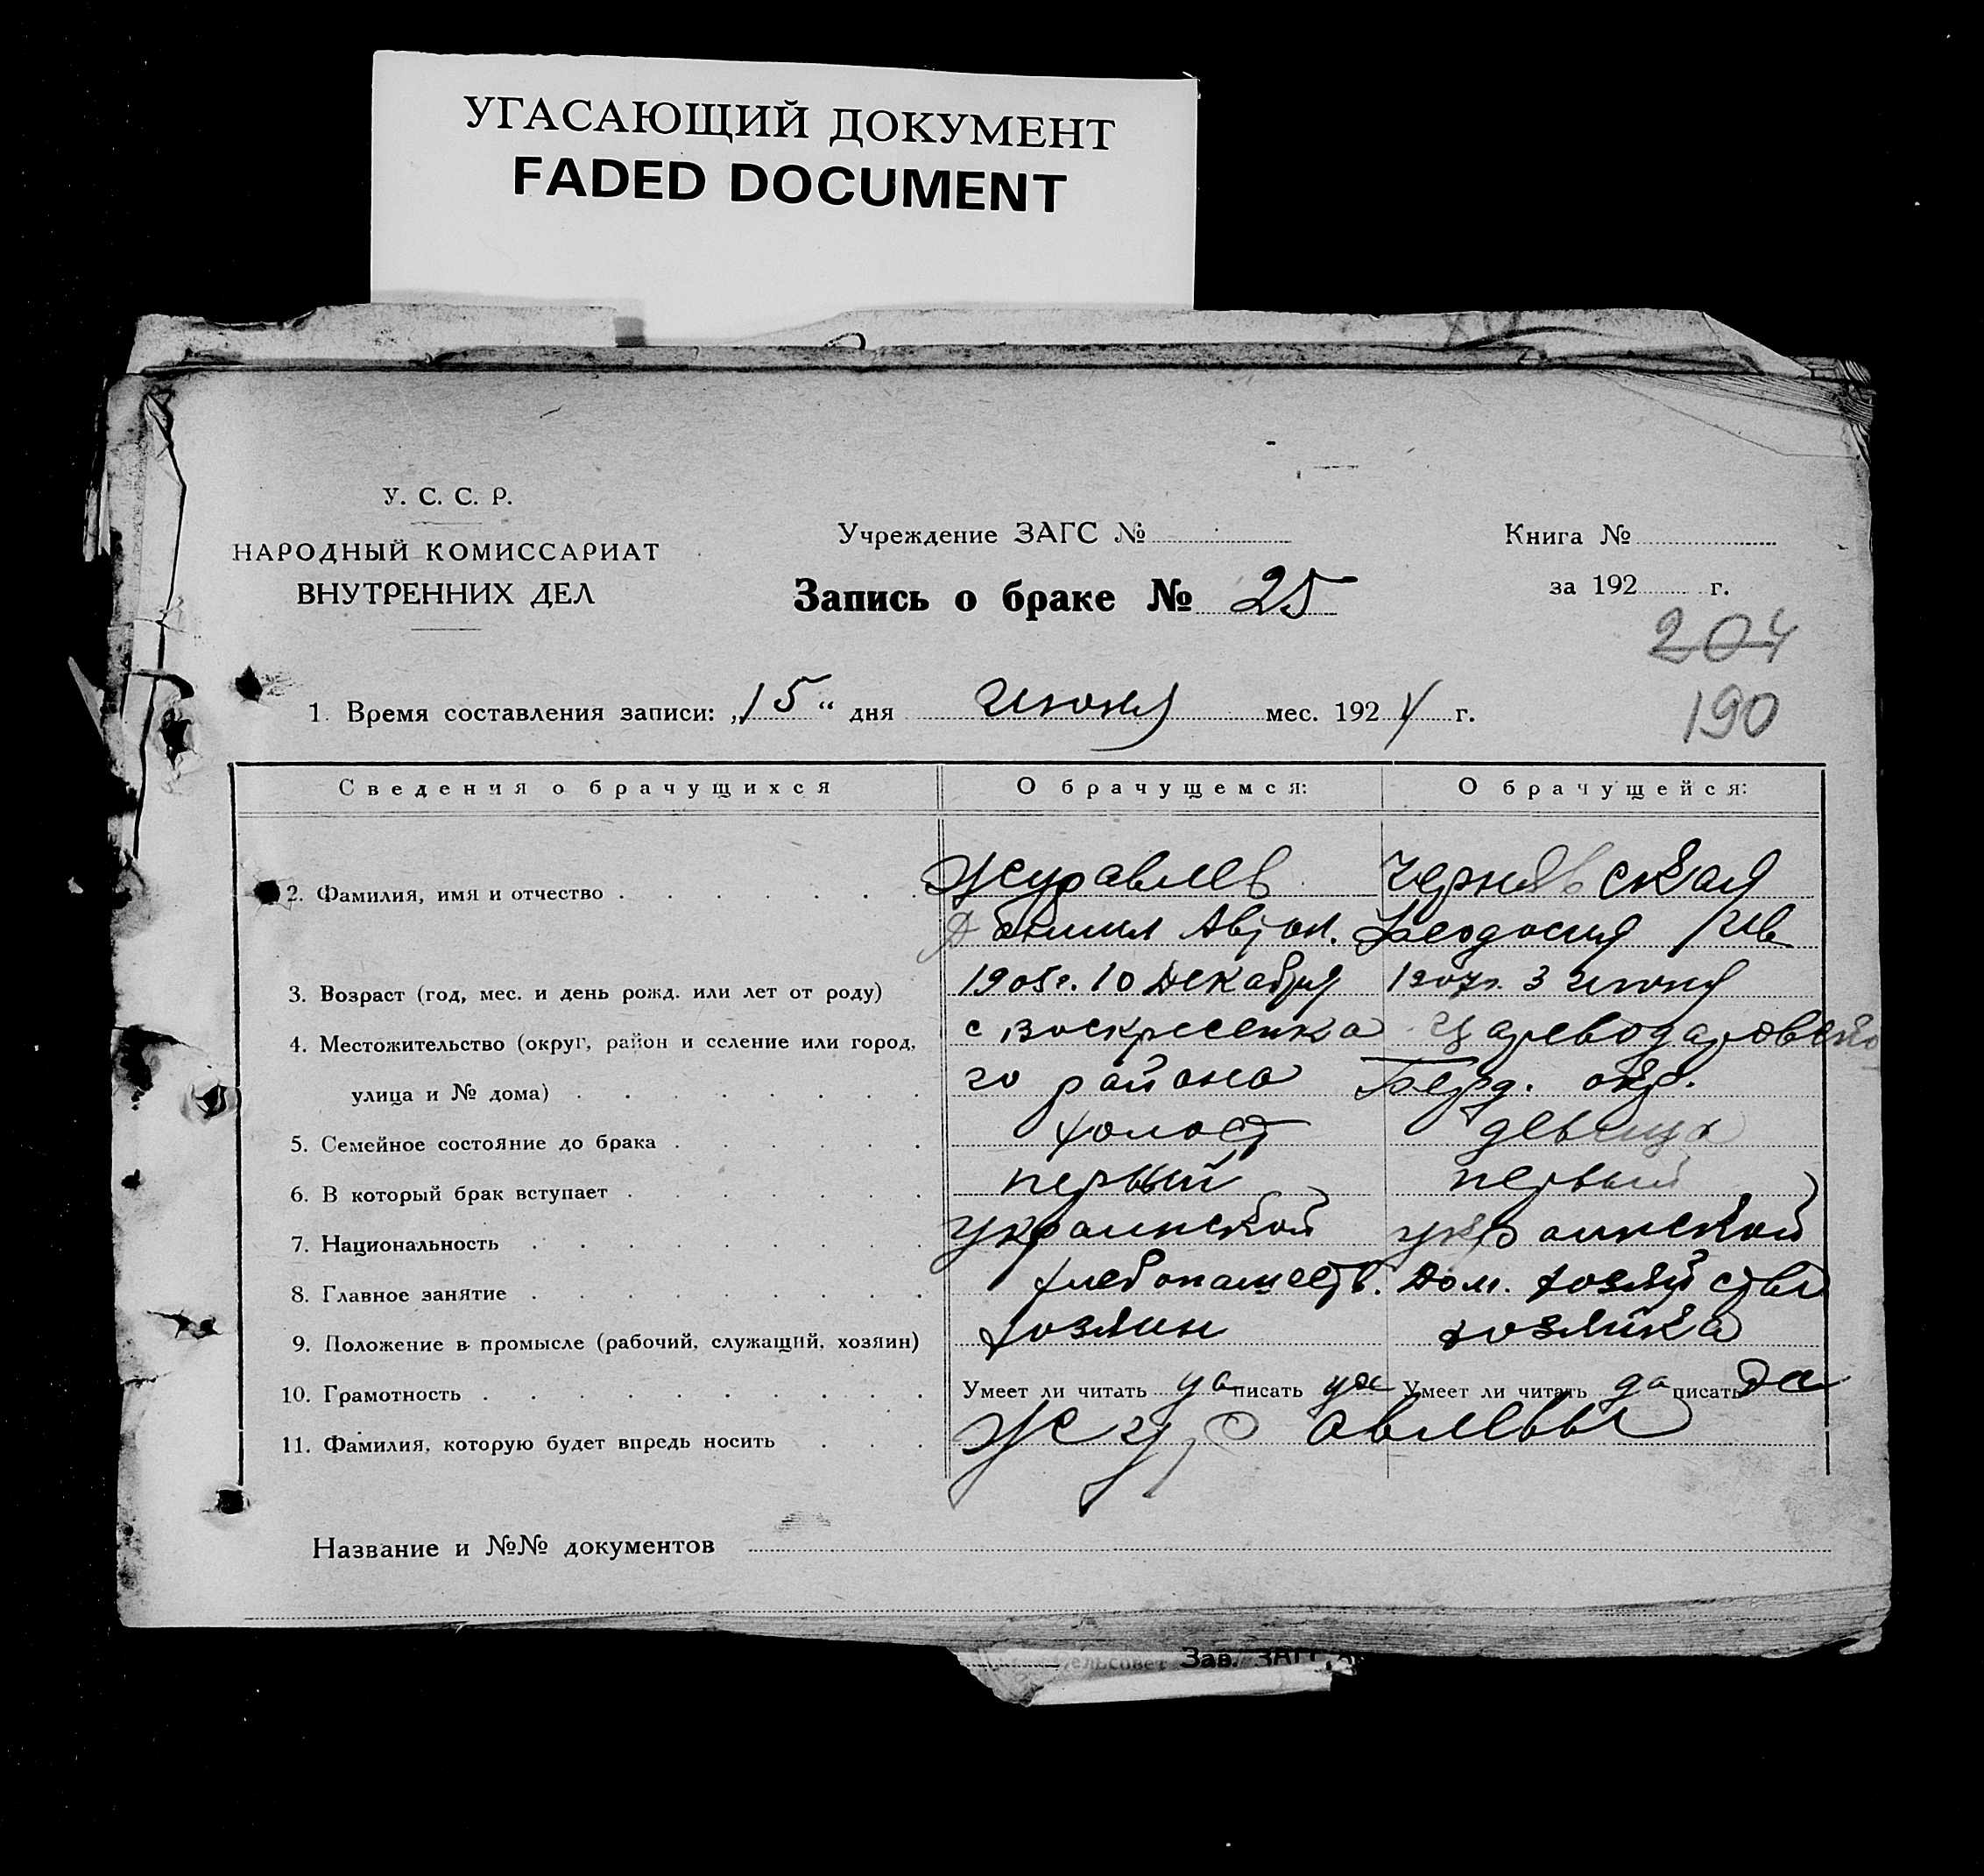 УГАСАЮЩИЙ ДОКУМЕНТ
FADED DOCUMENT
У. С. С. Р.
НАРОДНЫЙ КОМИССАРИАТ
ВНУТРЕННИХ ДЕЛ
Учреждение ЗАГС №
Запись о браке № 25
Книга №
за 192 г.
204
190
1. Время составления записи: „15“ дня июня мес. 1924 г.
Сведения о брачущихся О брачущемся: О брачущейся:
2. Фамилия, имя и отчество Журавлев Чернявская
Автон. Феодосия Ив
3. Возраст (год, мес. и день рожд. или лет от роду) 1905г. 10 Декабря 1907г. 3 июня
4. Местожительство (округ, район и селение или город, с Воскресенка Цареводаровско
улица и № дома) го района Берд. окр.
5. Семейное состояние до брака холост девица
6. В который брак вступает первый первый
7. Национальность украинской украинской
8. Главное занятие хлебопашеств. Дом. хозяйство
9. Положение в промысле (рабочий, служащий, хозяин) хозяин хозяйка
10. Грамотность Умеет ли читать да писать да Умеет ли читать да писать да
11. Фамилия, которую будет впредь носить Журавлевы
Название и №№ документов
Сельсовет Зав. ЗАГС